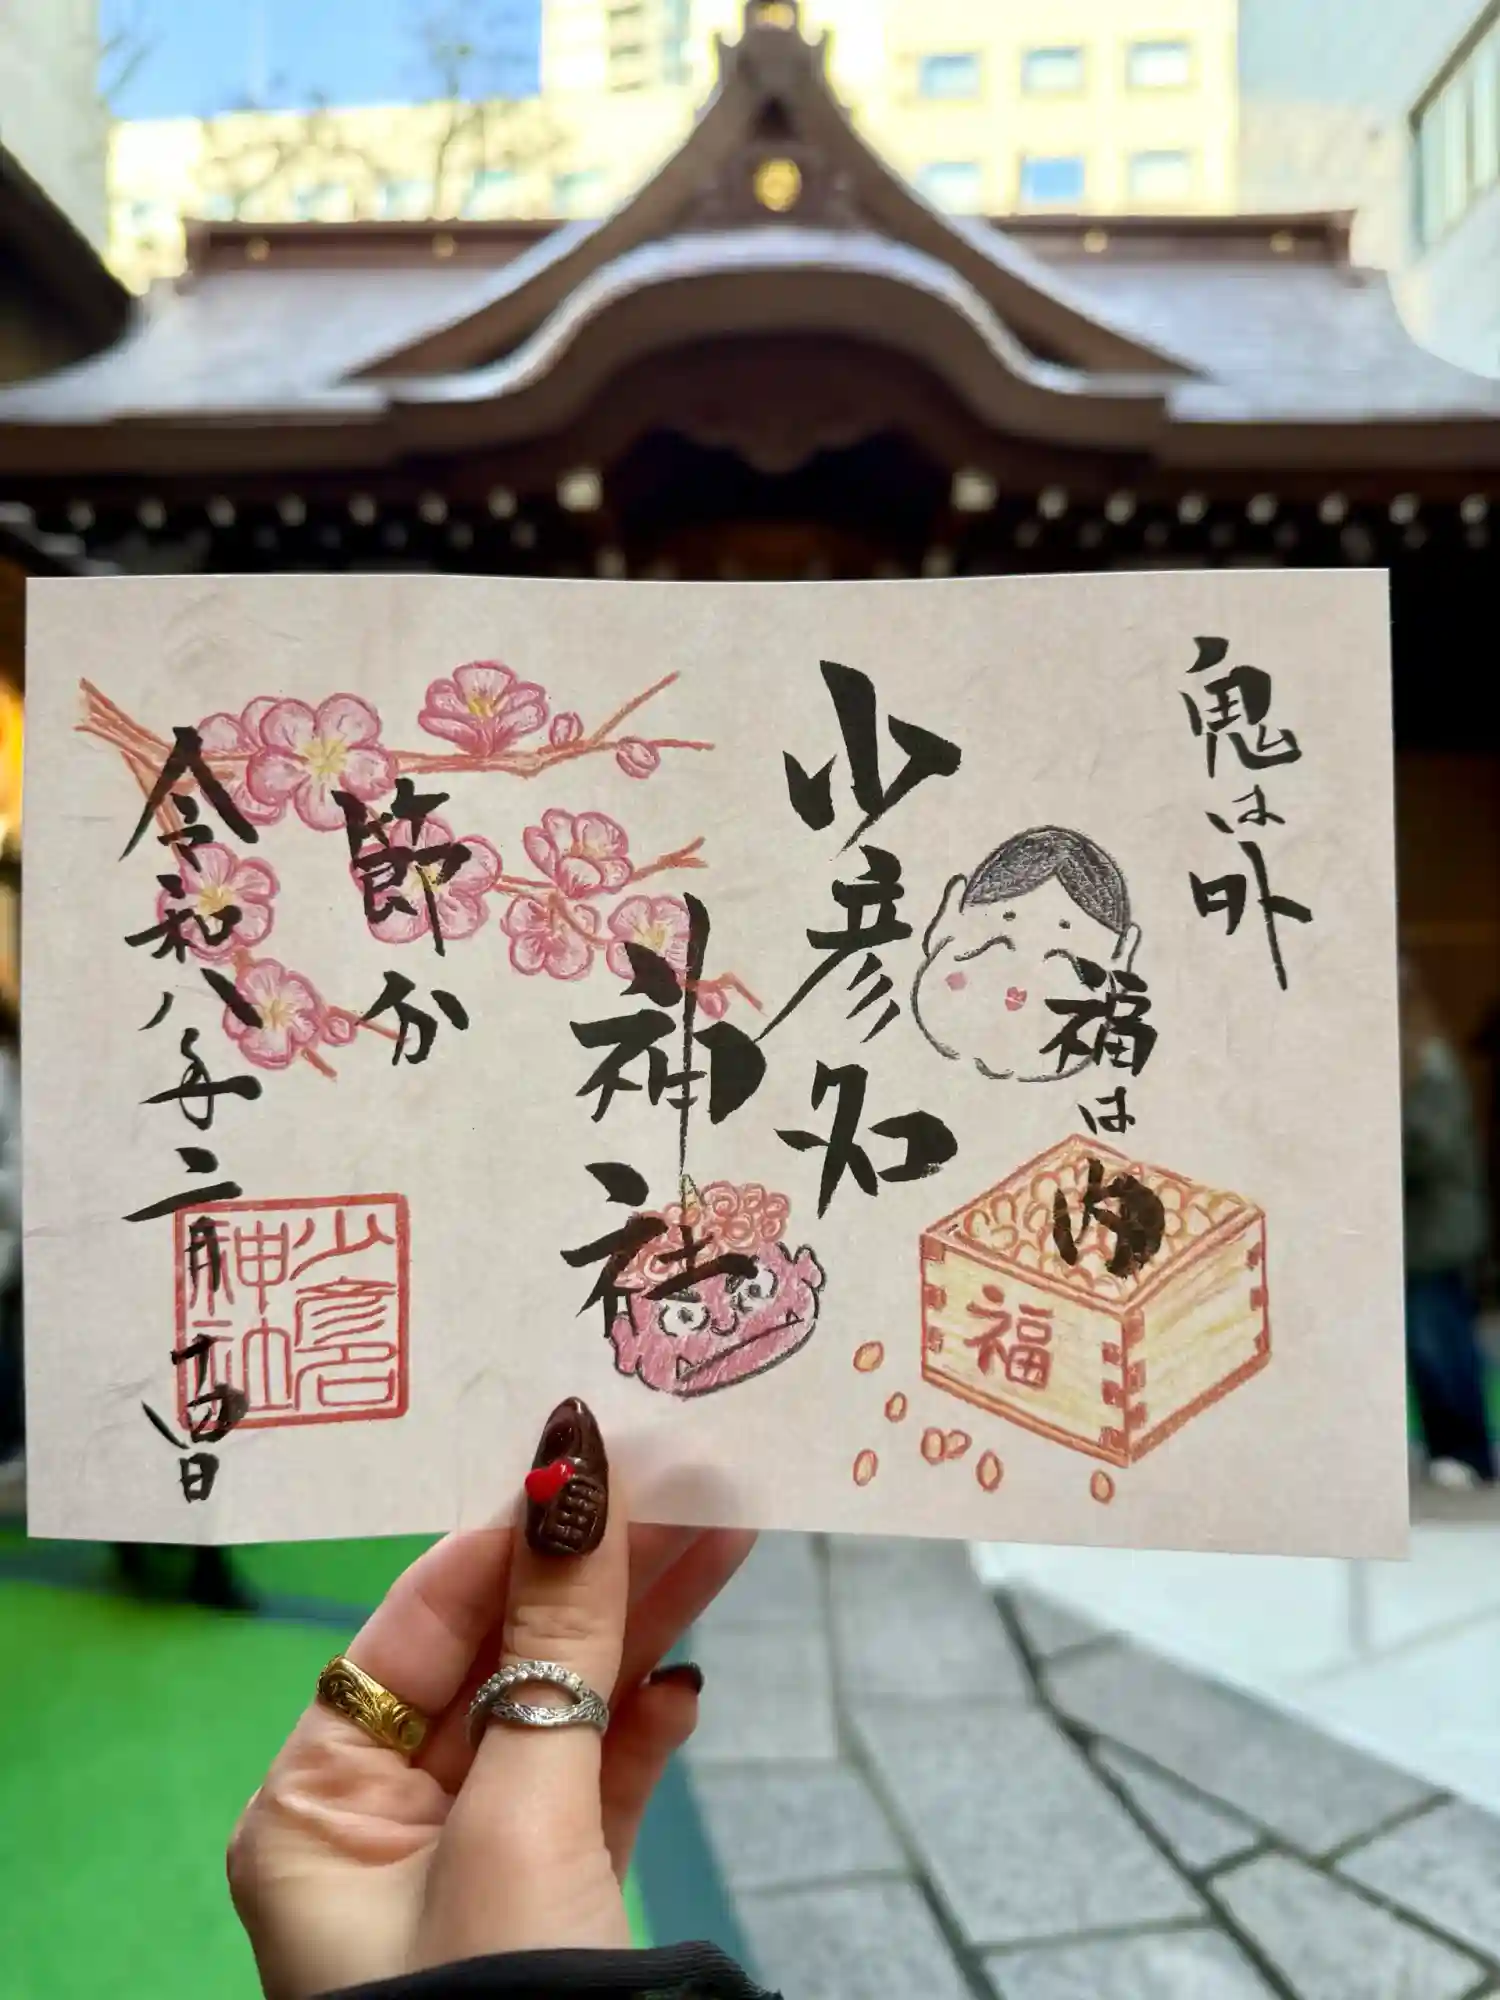 鬼は外
福は内
福
少彦名
神社
節分
令和八年二月十四日
少彦名
神社